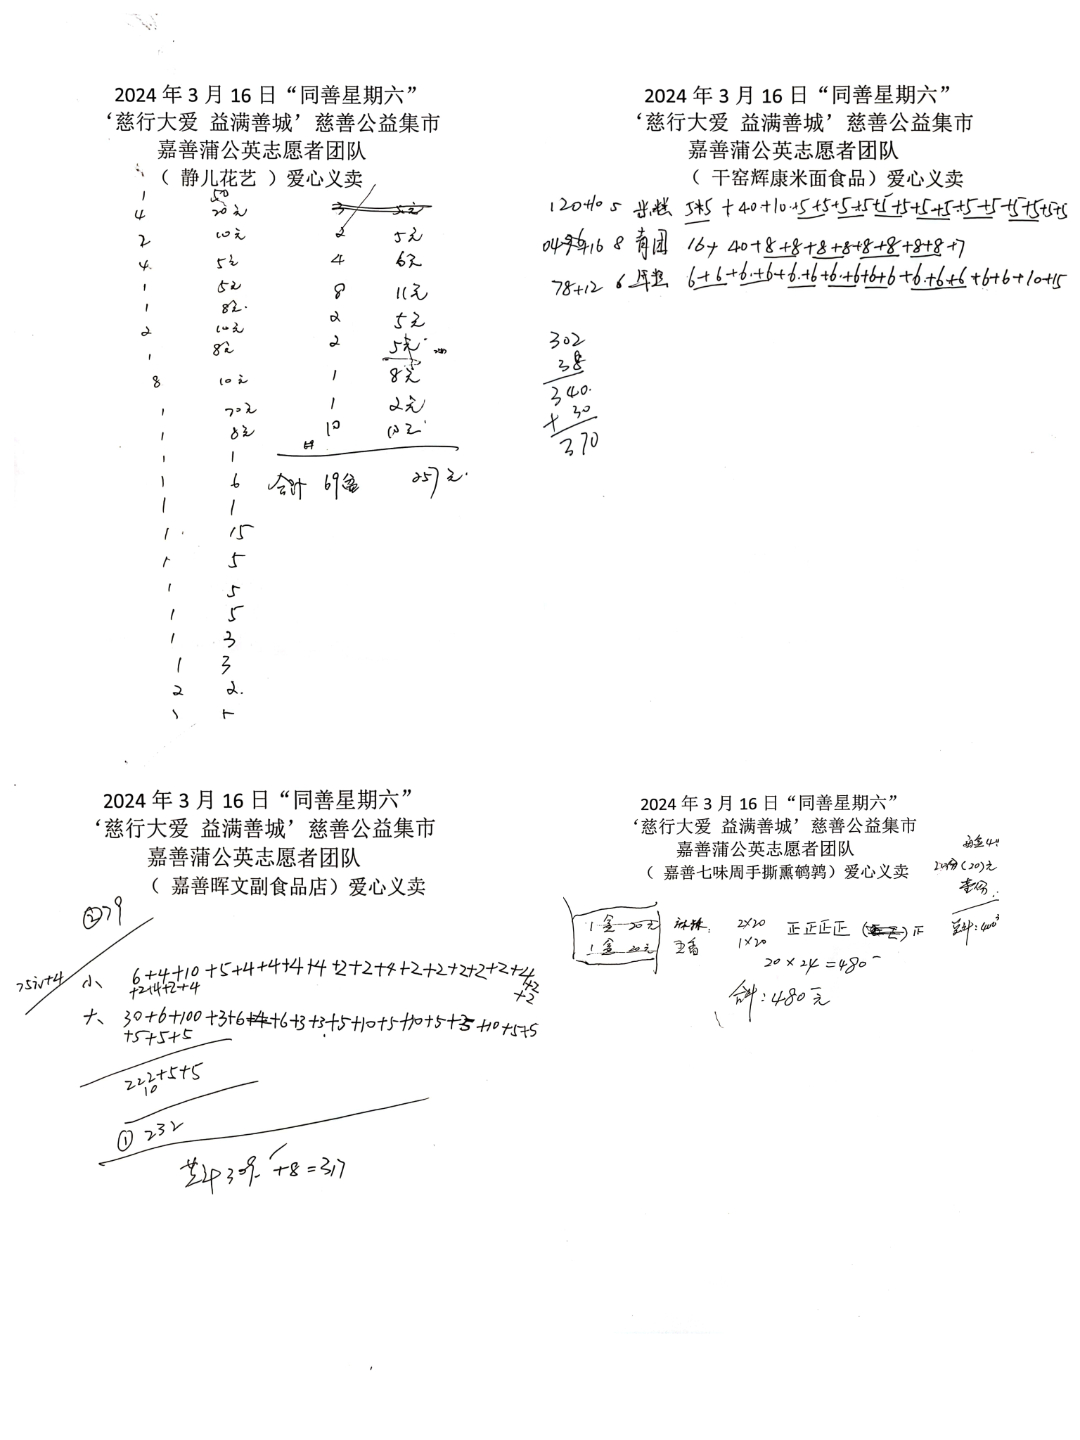 2024 年 3 月 16 日“同善星期六”
‘慈行大爱 益满善城’慈善公益集市
嘉善蒲公英志愿者团队
（ 静儿花艺 ）爱心义卖
1 50
4 20元
2 10元
4 5元
1 5元
1 8元
2 10元
1 8元
8 10元
1 70元
1 8元
1 1
1 6
1 1
1 15
1 5
1 5
1 5
1 3
1 3
2 2
3 5元
2 5元
4 6元
8 11元
2 5元
2 5元
1 8元
1 2元
10 10元
合计 69盆 257元
2024 年 3 月 16 日“同善星期六”
‘慈行大爱 益满善城’慈善公益集市
嘉善蒲公英志愿者团队
（ 干窑辉康米面食品）爱心义卖
120+10 5 5+5+40+10+5+5+5+5+5+5+5+5+5+5+5+5+5
16 8 青团 16+40+8+8+8+8+8+8+8+7
78+12 6 年糕 6+6+6+6+6+6+6+6+6+6+6+6+6+6+10+15
302
38
340
+ 30
370
2024 年 3 月 16 日“同善星期六”
‘慈行大爱 益满善城’慈善公益集市
嘉善蒲公英志愿者团队
（ 嘉善晖文副食品店）爱心义卖
②79
75+4
小、 6+4+10+5+4+4+4+4+2+2+4+2+2+2+2+2+4
+2+4+2+4
+2
+2
大、 30+6+100+3+6+4+6+3+3+5+10+5+10+5+5+10+5+5
+5+5+5
222+5+5
10
① 232
共计309 +8=317
2024 年 3 月 16 日“同善星期六”
‘慈行大爱 益满善城’慈善公益集市
嘉善蒲公英志愿者团队
（ 嘉善七味周手撕熏鹌鹑）爱心义卖
20份(20)元
1盒 20元 麻辣: 2×20 正正正正 正
1盒 20元 五香 1×20
20×24=480
合计:480元